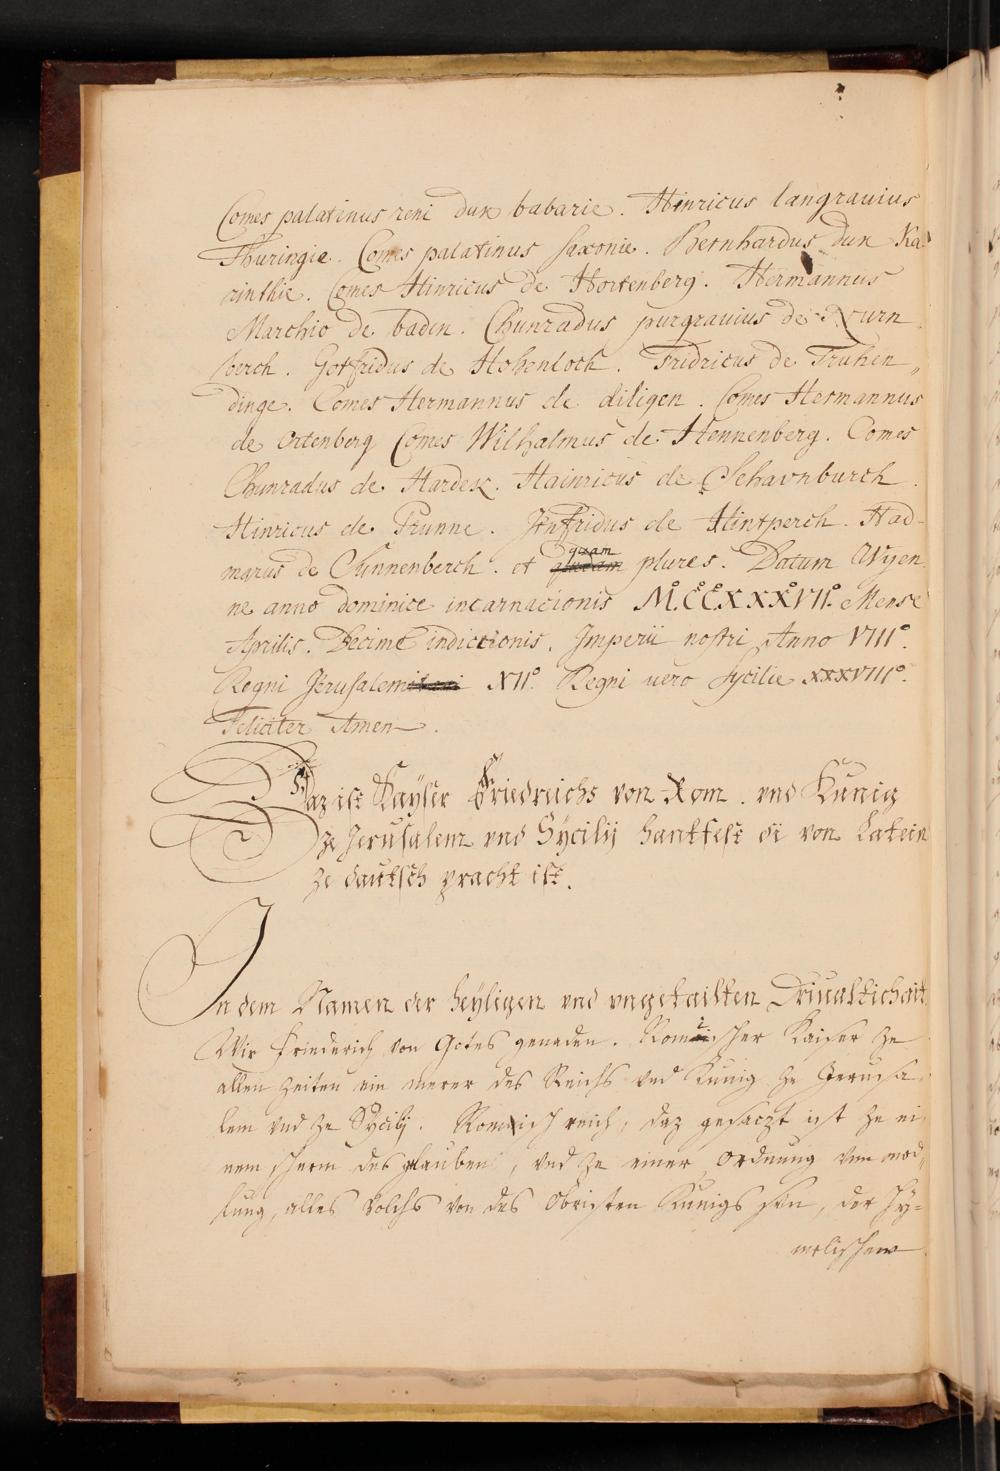 Comes palatinus reni dux babarie. Hinricus langravius
Thuringie. Comes palatinus saxonie. Bernhardus dux Ka„
rinthie. Comes Hinricus de Hortenberg. Hermannus
Marchio de baden. Chunradus purgrauius de Nurn
berch. Gotfridus de Hohenloch. Fridricus de Truhen„
dinge. Comes Hermannus de diligen. Comes Hermannus
de ortenberg Comes Wilhalmus de Hennenberg. Comes
Chunradus de Hardek. Hainricus de Schavnburch.
Hinricus de Prunne. de Hintperch. Had-
marus de Chunnenberch. et quam plures. Datum Wyen
ne anno dominice incarnacionis M.CCXXXVII. Mense
Aprilis. Decime indictionis. Imperii nostri Anno VIII°.
Regni Jerusalem XII°. Regni uero Sycilie XXXVIII°.
Feliciter Amen.
Daz ist Kayser Friedreichs von Rom. vnd Kunig
ze Jerusalem vnd Sycilij hantfest di von Latein
ze dautsch pracht ist.
In dem Namen der heyligen vnd vngetailten Driualtichait
Wir Friederich von Gotes genaden. Romischer Kaiser ze
allen zeiten ein merer des Reichs vnd Kunig ze Jerusa„
lem vnd ze Sycilij. Romisch reich, daz gesaczt ist ze ei
nem scherm des glauben, vnd ze einer ordnung vnn
alles Volchs von des Obristen Kunigs, der hy=
melischen